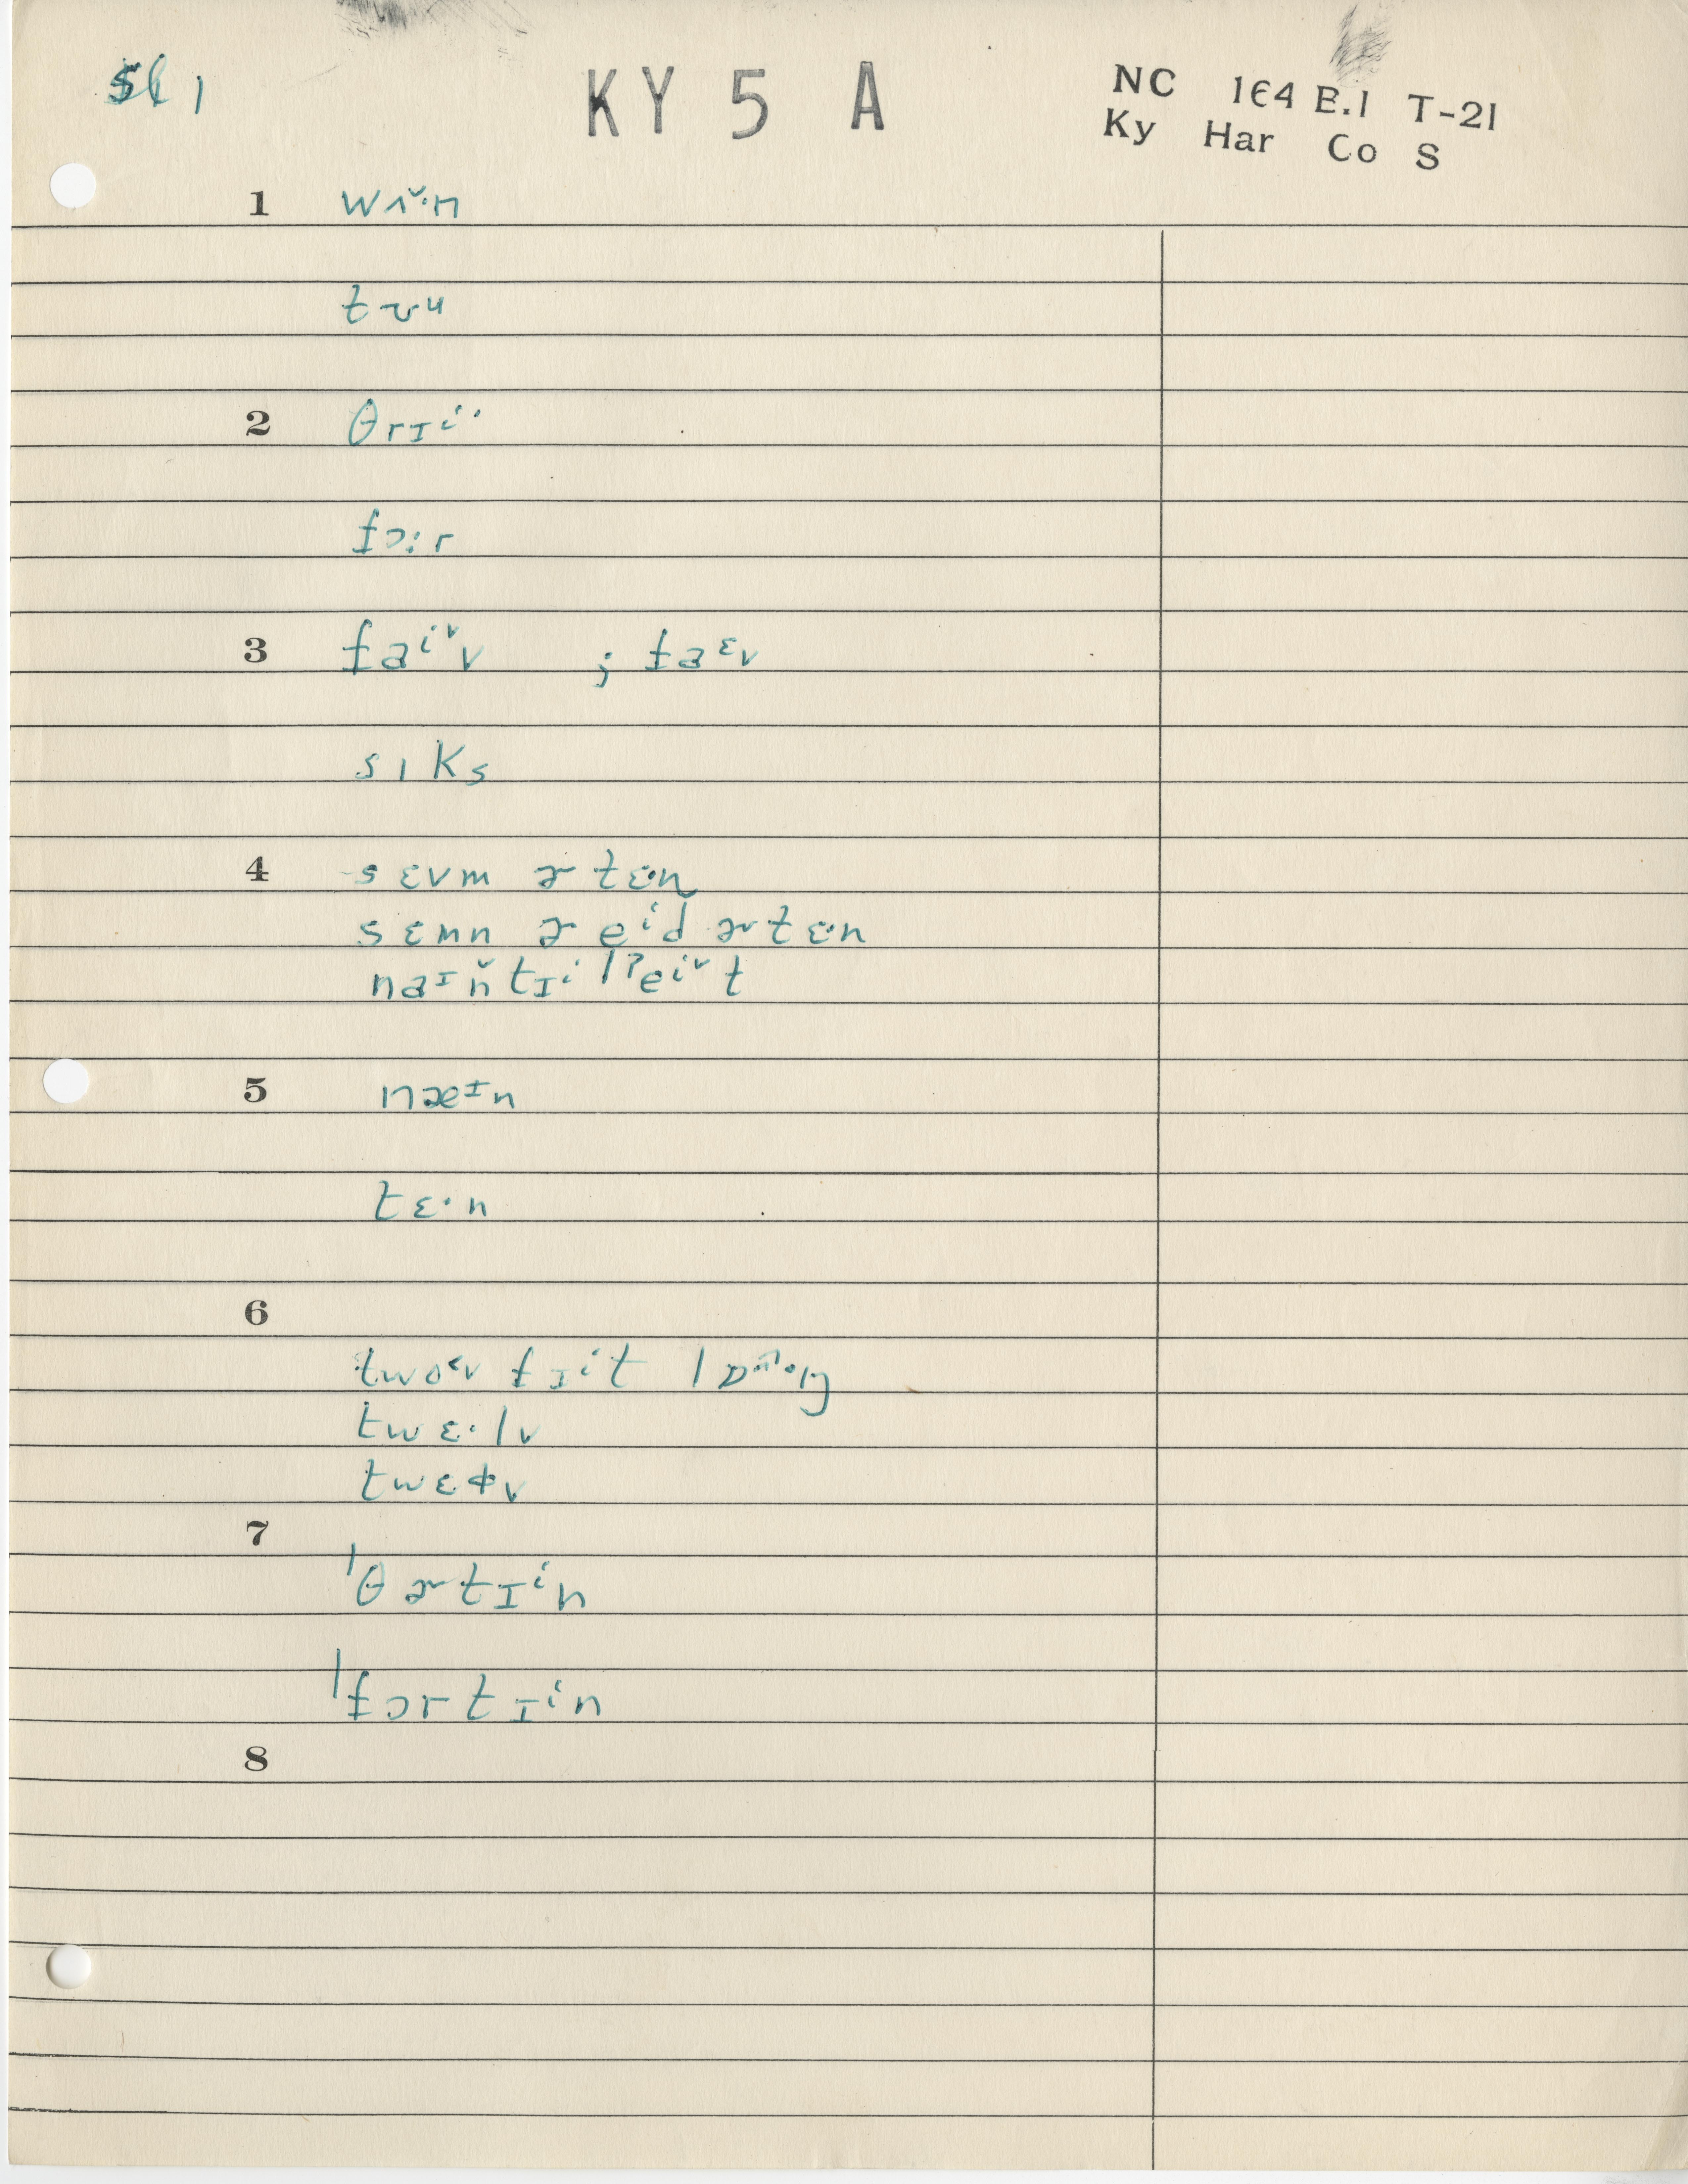 KY 5 A
NC 164 E.1 T-21
Ky Har Co S
1 wʌ̌·n
tʊu
2 θrɪi·
fɔ:r
3 faiˇv ; faɛv
sıks
4 sɛvm ɚ tɛ·n
sɛmn ɚ eid ɚtɛ·n
naɪňtɪi|ʔeiˇt
5 næɪn
tɛ·n
6
fɪit
twɛ·lv
twɛɫv
7
ˈθɚtɪin
ˈfɔrtɪin
8